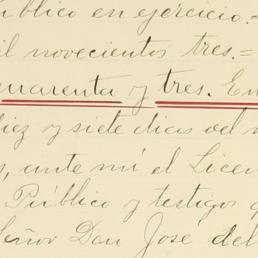 úblico en ejercicio.=
il novecientos tres.=
cuarenta y tres. En
diez y siete dias del m
s, ante mí el Licen
Público y testigos q
Señor Don José del